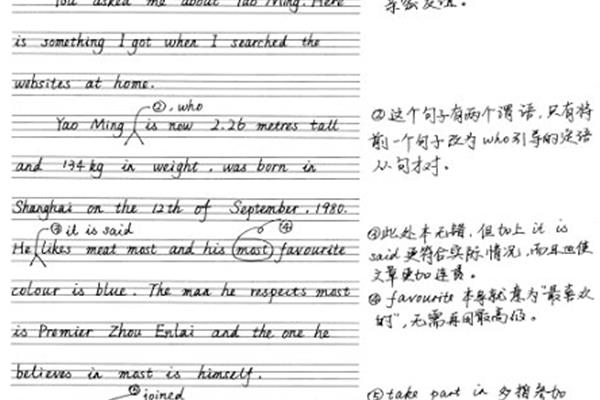 You asked me about Yao Ming. Here
is something I got when I searched the
websites at home.
②, who
Yao Ming is now 2.26 metres tall
and 134 kg in weight, was born in
Shanghai on the 12th of September, 1980.
③ it is said
④
He likes meat most and his most favourite
colour is blue. The man he respects most
is Premier Zhou Enlai and the one he
believes in most is himself.
⑤ joined
②这个句子有两个谓语,只有将
前一个句子改为who引导的定语
从句才对。
③此处本无错,但加上 it is
said 更符合实际情况,而且也使
文章更加连贯。
④ favourite 本身就意为“最喜欢
的”,无需再用最高级。
⑤take part in 多指参加